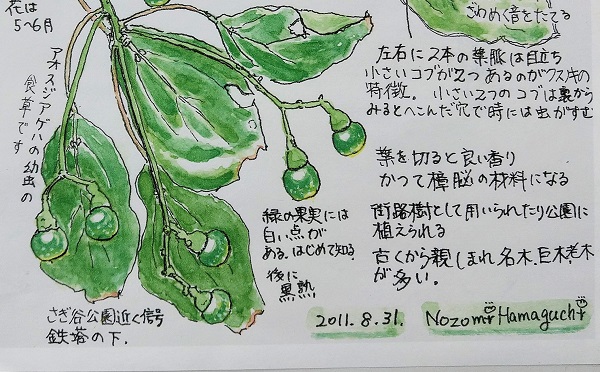 花は
5〜6月
ざわめく音をたてる
アオスジアゲハの幼虫の
食草です
左右に2本の葉脈は目立ち
小さいコブが2つあるのがクスノキの
特徴。小さい2つのコブは裏から
みるとへこんだ穴で時には虫がすむ
葉を切ると良い香り
かつて樟脳の材料になる
街路樹として用いられたり公園に
植えられる
古くから親しまれ名木、巨木、老木
が多い。
緑の果実には
白い点が
ある、はじめて知る、
後に
黒熟
さぎ谷公園近く信号
鉄塔の下.
2011.8.31.
Nozomi Hamaguchi